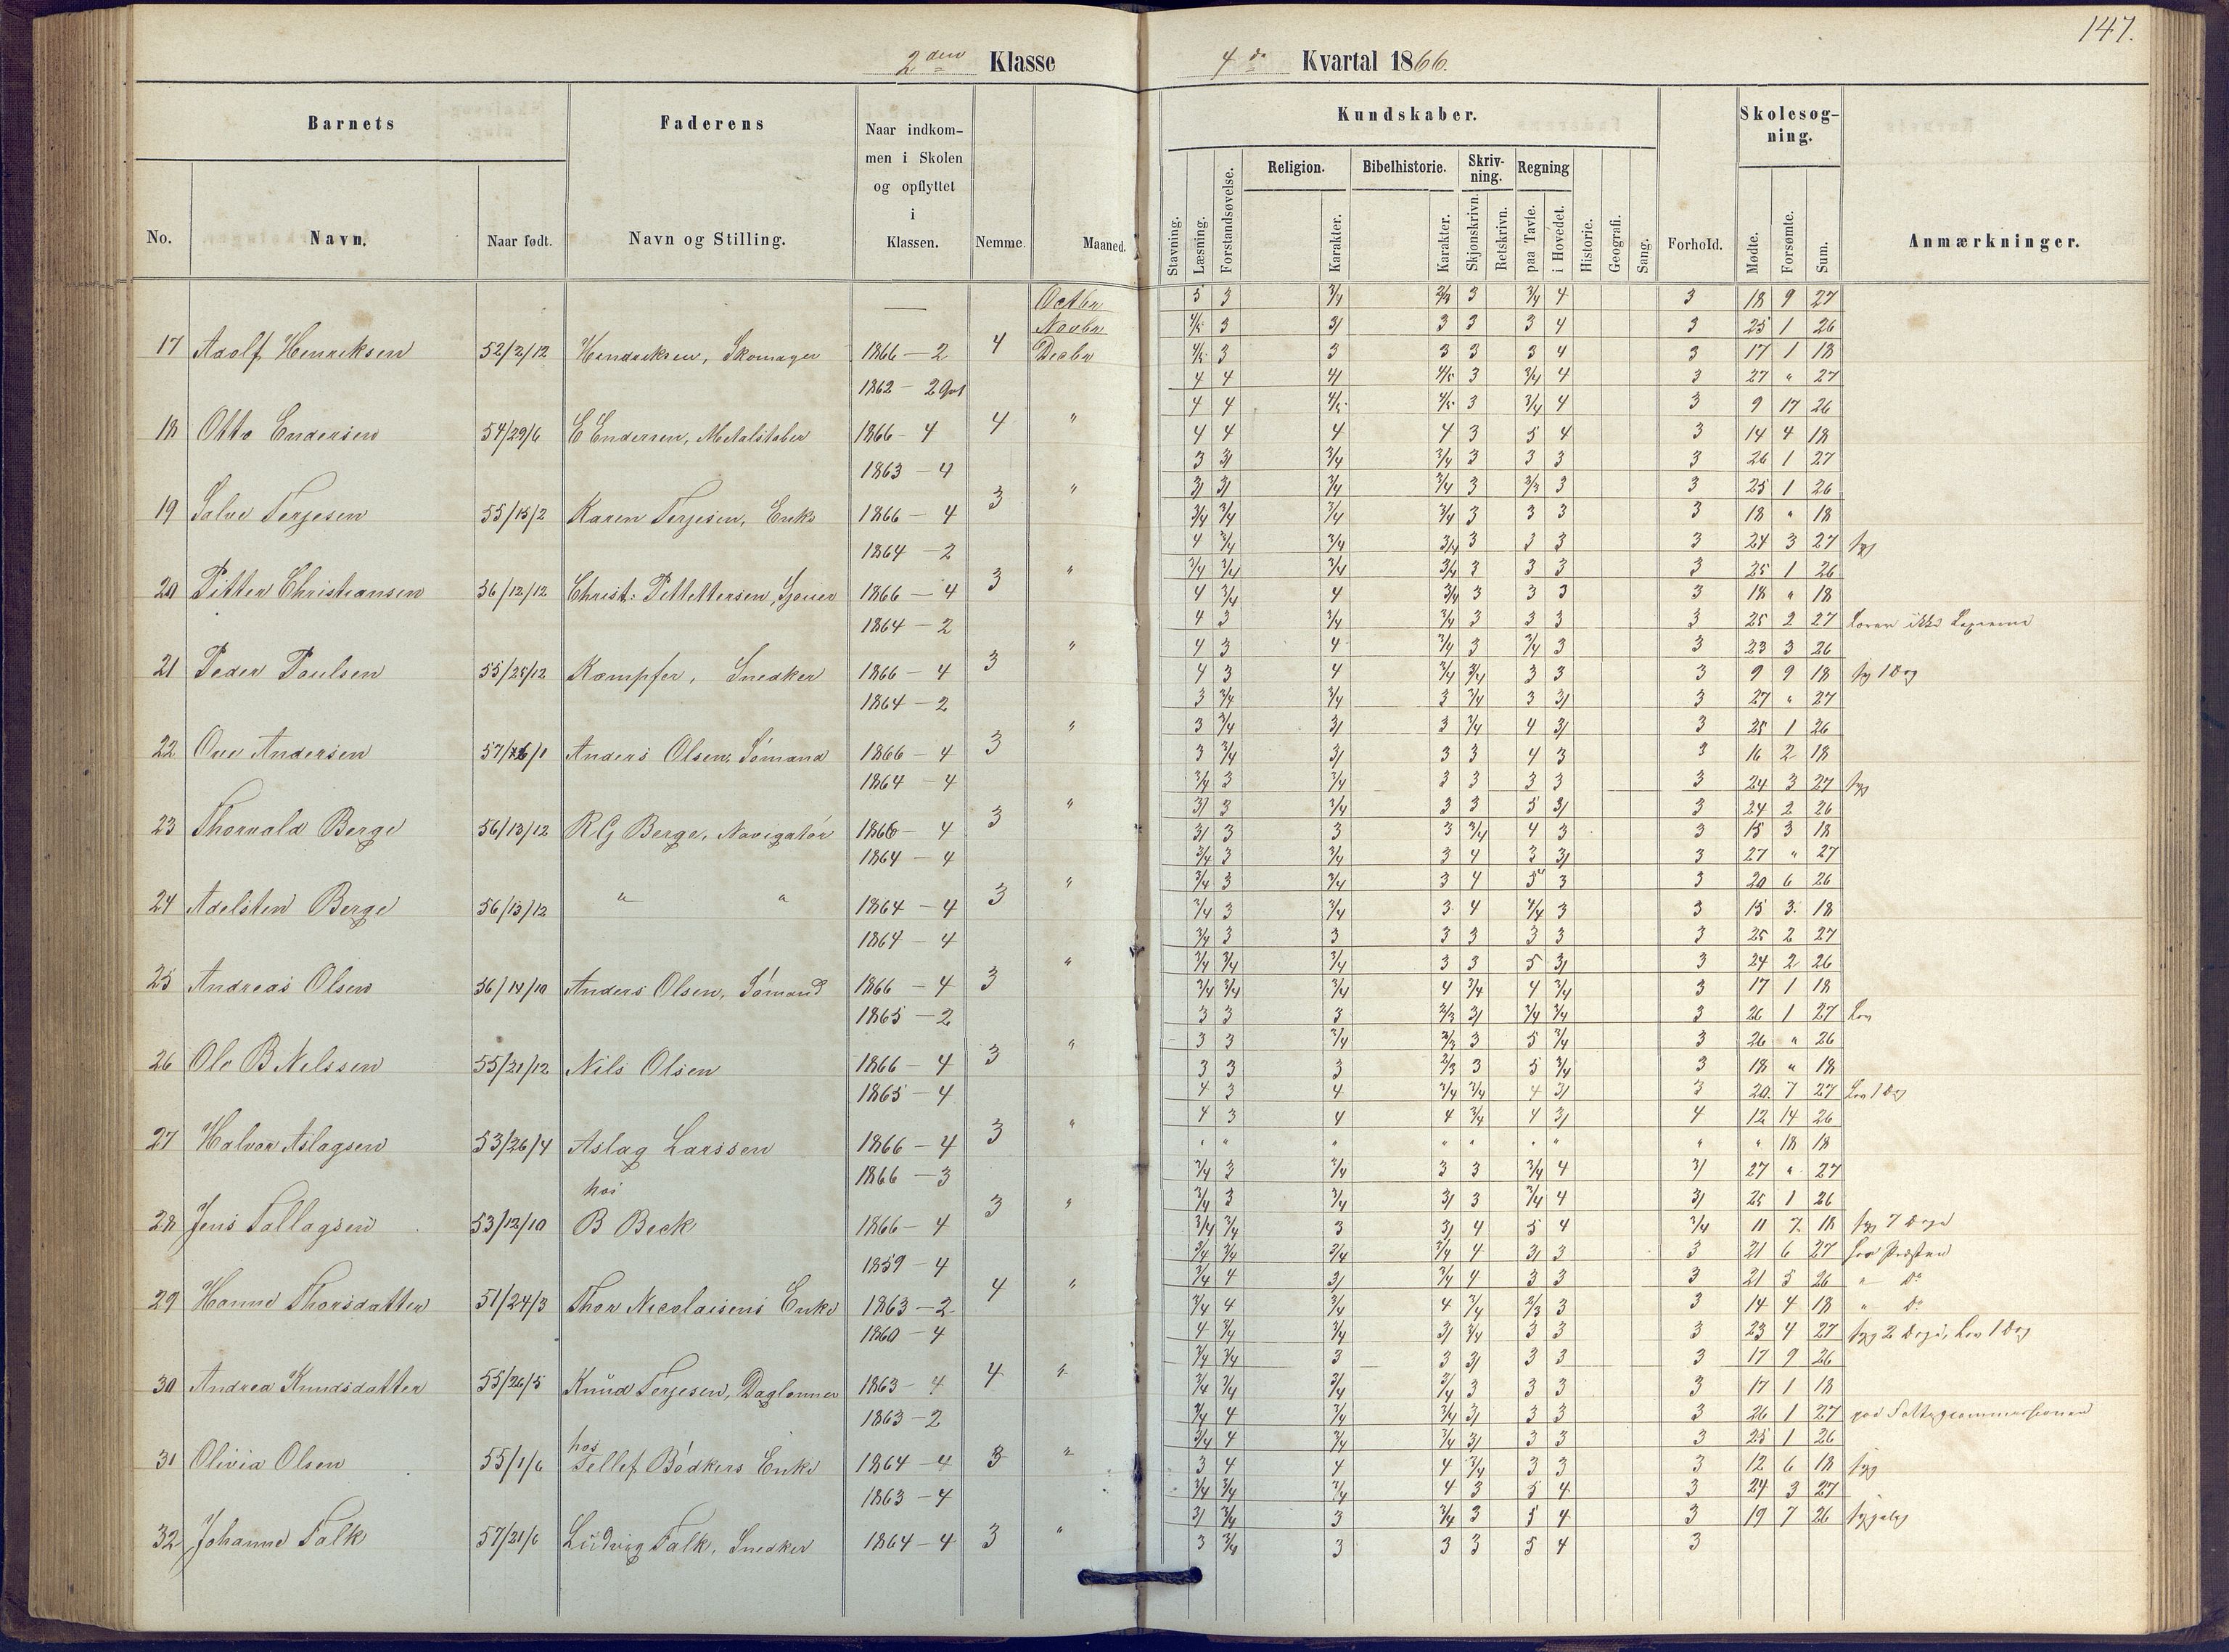 147.
2den Klasse
4de Kvartal 1866.
Barnets
Faderens
Naar indkommen i Skolen og opflyttet i Klassen.
Nemme.
Maaned.
Kundskaber.
Forhold.
Skolesøgning.
Anmærkninger.
No.
Navn.
Naar født.
Navn og Stilling.
Stavning.
Læsning.
Forstandsøvelse.
Religion.
Karakter.
Bibelhistorie.
Karakter.
Skrivning.
Skjønskrivn.
Retskrivn.
Regning
paa Tavle.
i Hovedet.
Historie.
Geografi.
Sang.
Mødte.
Forsømte.
Sum.
Octbr 3 3 3/4 2/3 3 3/4 4 3 18 9 27
Novbr 4/5 3 3/ 3 3 3 4 3 25 1 26
17 Adolf Henriksen 52/2/12 Hendriksen, Skomager 1866 – 2 4 Decbr 4/5 3 3 3 3 3 4 3 17 1 18
1862 – 2 4 4 4/ 4/5 3 3/4 4 3 27 " 27
4 4 4/5 4/5 3 3/4 4 3 9 17 26
18 Otto Endersen 54/29/6 E Endersen, Metalstøber 1866 – 4 4 " 4 4 4 4 3 5 4 3 14 4 18
1863 – 4 3 3/ 3/4 3/4 3 3 3 3 26 1 27
3/ 3/ 3/4 3/4 3 2/3 3 3 25 1 26
19 Salve Terjesen 55/15/2 Karen Terjesen, Enke 1866 – 4 3 " 3/4 3/4 3/4 3/4 3 3 3 3 18 " 18
1864 – 2 4 3/4 3/4 3/4 3 3 3 3 24 3 27 syg
3/4 3/4 3/4 3/4 3 3 3 3 25 1 26
20 Pitter Christiansen 56/12/12 Christ: Pittettersen, Sjouer 1866 – 4 3 " 4 3/4 4 3/4 3 3 3 3 18 " 18
1864 – 2 4 3 3/4 3/4 3 3 3 3 25 2 27 Lærer ikke Lexerne
4 3 4 3/4 3 3/4 3 3 23 3 26
21 Peder Poulsen 55/25/12 Kæmpfer, Snedker 1866 – 4 3 " 4 3 4 3/4 3/4 3 3 3 9 9 18 syg 1 Dag
1864 – 2 3 3/4 3/4 3 3/4 3 3/ 3 27 " 27
3 3/4 3/ 3 3/4 4 3/ 3 25 1 26
22 Ove Andersen Anders Olsen, Sømand 1866 – 4 3 " 3 3/4 3/ 3 3 4 3 3 16 2 18
1864 – 4 3/4 3 3/4 3 3 3 3 3 24 3 27 syg
3/ 3 3/4 3 3 5 3/ 3 24 2 26
23 Thorvald Berge 56/13/12 R G Berge, Navigatør 1866 – 4 3 " 3/ 3 3 3 3/4 4 3 3 15 3 18
1864 – 4 3/4 3 3/4 3 4 3 3/ 3 27 " 27
3/4 3 3/4 3 4 5 3 3 20 6 26
24 Adelsten Berge 56/13/12 " " 1864 – 4 3 " 3/4 3 3/4 3 4 3/4 3 3 15 3 18
1864 – 4 3/4 3 3 3 3 3 3 3 25 2 27
3/4 3/4 3/4 3 3 5 3/ 3 24 2 26
25 Andreas Olsen 56/19/10 Anders Olsen, Sømand 1866 – 4 3 " 3/4 3/4 3/4 4 3/4 4 3/4 3 17 1 18
1865 – 2 3 3 3 2/3 3/ 3/4 3/4 3 26 1 27 Lov
3 3 3/4 2/3 3 5 3/4 3 26 " 26
26 Ole B Nilssen 55/21/12 Nils Olsen 1866 – 4 3 " 3 3 3 2/3 3 5 3/4 3 18 " 18
1865 – 4 4 3 4 3/4 3/4 4 3/ 3 20 7 27 Lov 1 Dag
4 3 4 4 3/4 4 3/ 4 12 14 26
27 Halvor Aslagsen 53/26/4 Aslag Larssen 1866 – 4 3 " " " " " " " " " " 18 18
1866 – 3 3/4 3 3/4 3 3 3/4 4 3/ 27 " 27
hos 3/4 3 3/4 3/ 3 3/4 4 3/ 25 1 26
28 Jens Tallagsen 53/12/10 B Beck 1866 – 4 3 " 3/4 3/4 3 3/ 4 5 4 3/4 11 7 18 syg 7 Dage
1859 – 4 3/4 3/4 3/4 3/4 4 3/ 3 3 21 6 27 hos Præsten
3/4 4 3/ 3/4 4 3 3 3 21 5 26 " do
29 Hanne Thorsdatter 51/24/3 Thor Nicolaisens Enke 1863 – 2 4 " 3/4 4 3/4 4 3/4 2/3 3 3 14 4 18 " do
1860 – 4 4 3/4 3/4 3/ 3/4 3 3 3 23 4 27 syg 2 Dage, Lov 1 Dag
3/4 3/4 3 3 3/ 3 3 3 17 9 26
30 Andrea Knudsdatter 55/26/5 Knud Terjesen, Daglønner 1863 – 4 4 " 3/4 3/4 3/4 3/4 3 3 3 3 17 1 18
1863 – 2 3/4 4 3/4 3/4 3/ 3 3 3 26 1 27
hos 3/4 4 3/4 3/4 3/ 3 3 3 25 1 26
31 Olivia Olsen 55/1/6 Tellef Bødkers Enke 1864 – 4 3 " 3 4 4 4 3/4 3 3 3 12 6 18 syg
1863 – 4 3/4 3/4 3/4 4 3 5 4 3 24 3 27
3/ 3/4 3 3/4 3 5 4 3 19 7 26 sygelig
32 Johanne Falk 57/21/6 Ludvig Falk, Snedker 1864 – 4 3 " 3 3/4 3 3 3 5 4 3